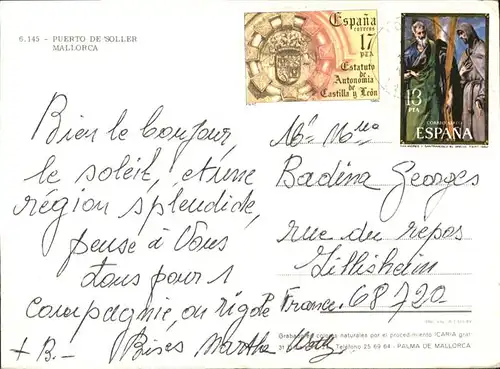 6.145 - PUERTO DE SOLLER
MALLORCA
España
correos
17
PTA
Estatuto
de
Autonomía
de
Castilla y León
13
PTA
CORREOS
ESPAÑA
Bien le bonjour,
le soleil, et une
région splendide,
pense à Vous
tous pour 1
compagnie, on rigole
+ B.- Bises Martha
Mr Mme
Badina Georges
rue du repos
Zillisheim
France 68720
Grabado en colores naturales por el procedimiento ICARIA graf
Teléfono 25 69 64 - PALMA DE MALLORCA